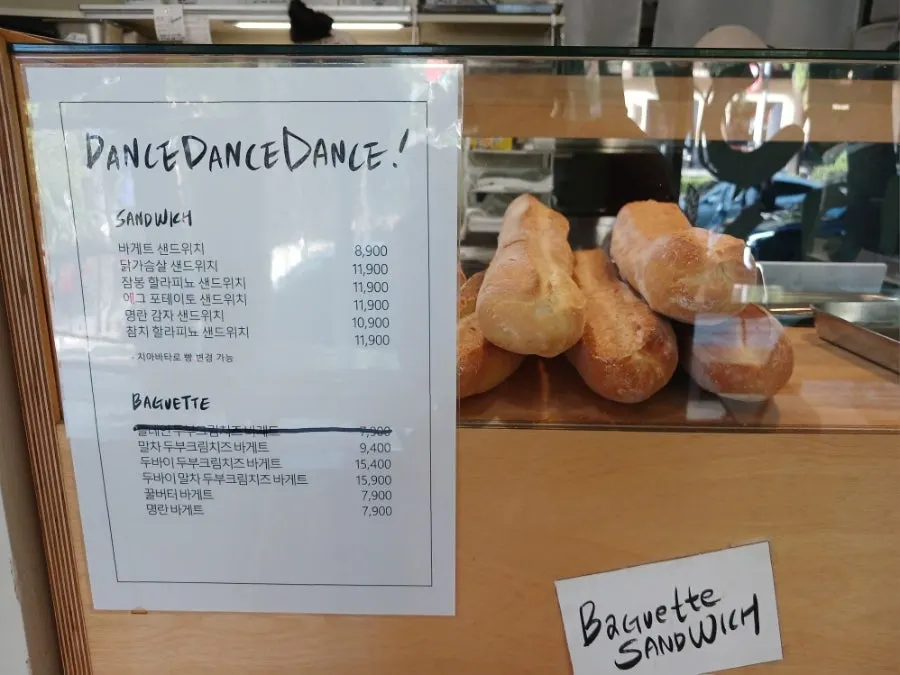 DANCEDANCEDANCE!
SANDWICH
바게트 샌드위치 8,900
닭가슴살 샌드위치 11,900
잠봉 할라피뇨 샌드위치 11,900
에그 포테이토 샌드위치 11,900
명란 감자 샌드위치 10,900
참치 할라피뇨 샌드위치 11,900
- 치아바타로 빵 변경 가능
BAGUETTE
플레인 두부크림치즈 바게트 7,900
말차 두부크림치즈 바게트 9,400
두바이 두부크림치즈 바게트 15,400
두바이 말차 두부크림치즈 바게트 15,900
꿀버터 바게트 7,900
명란 바게트 7,900
BaGuette
SANDWICH